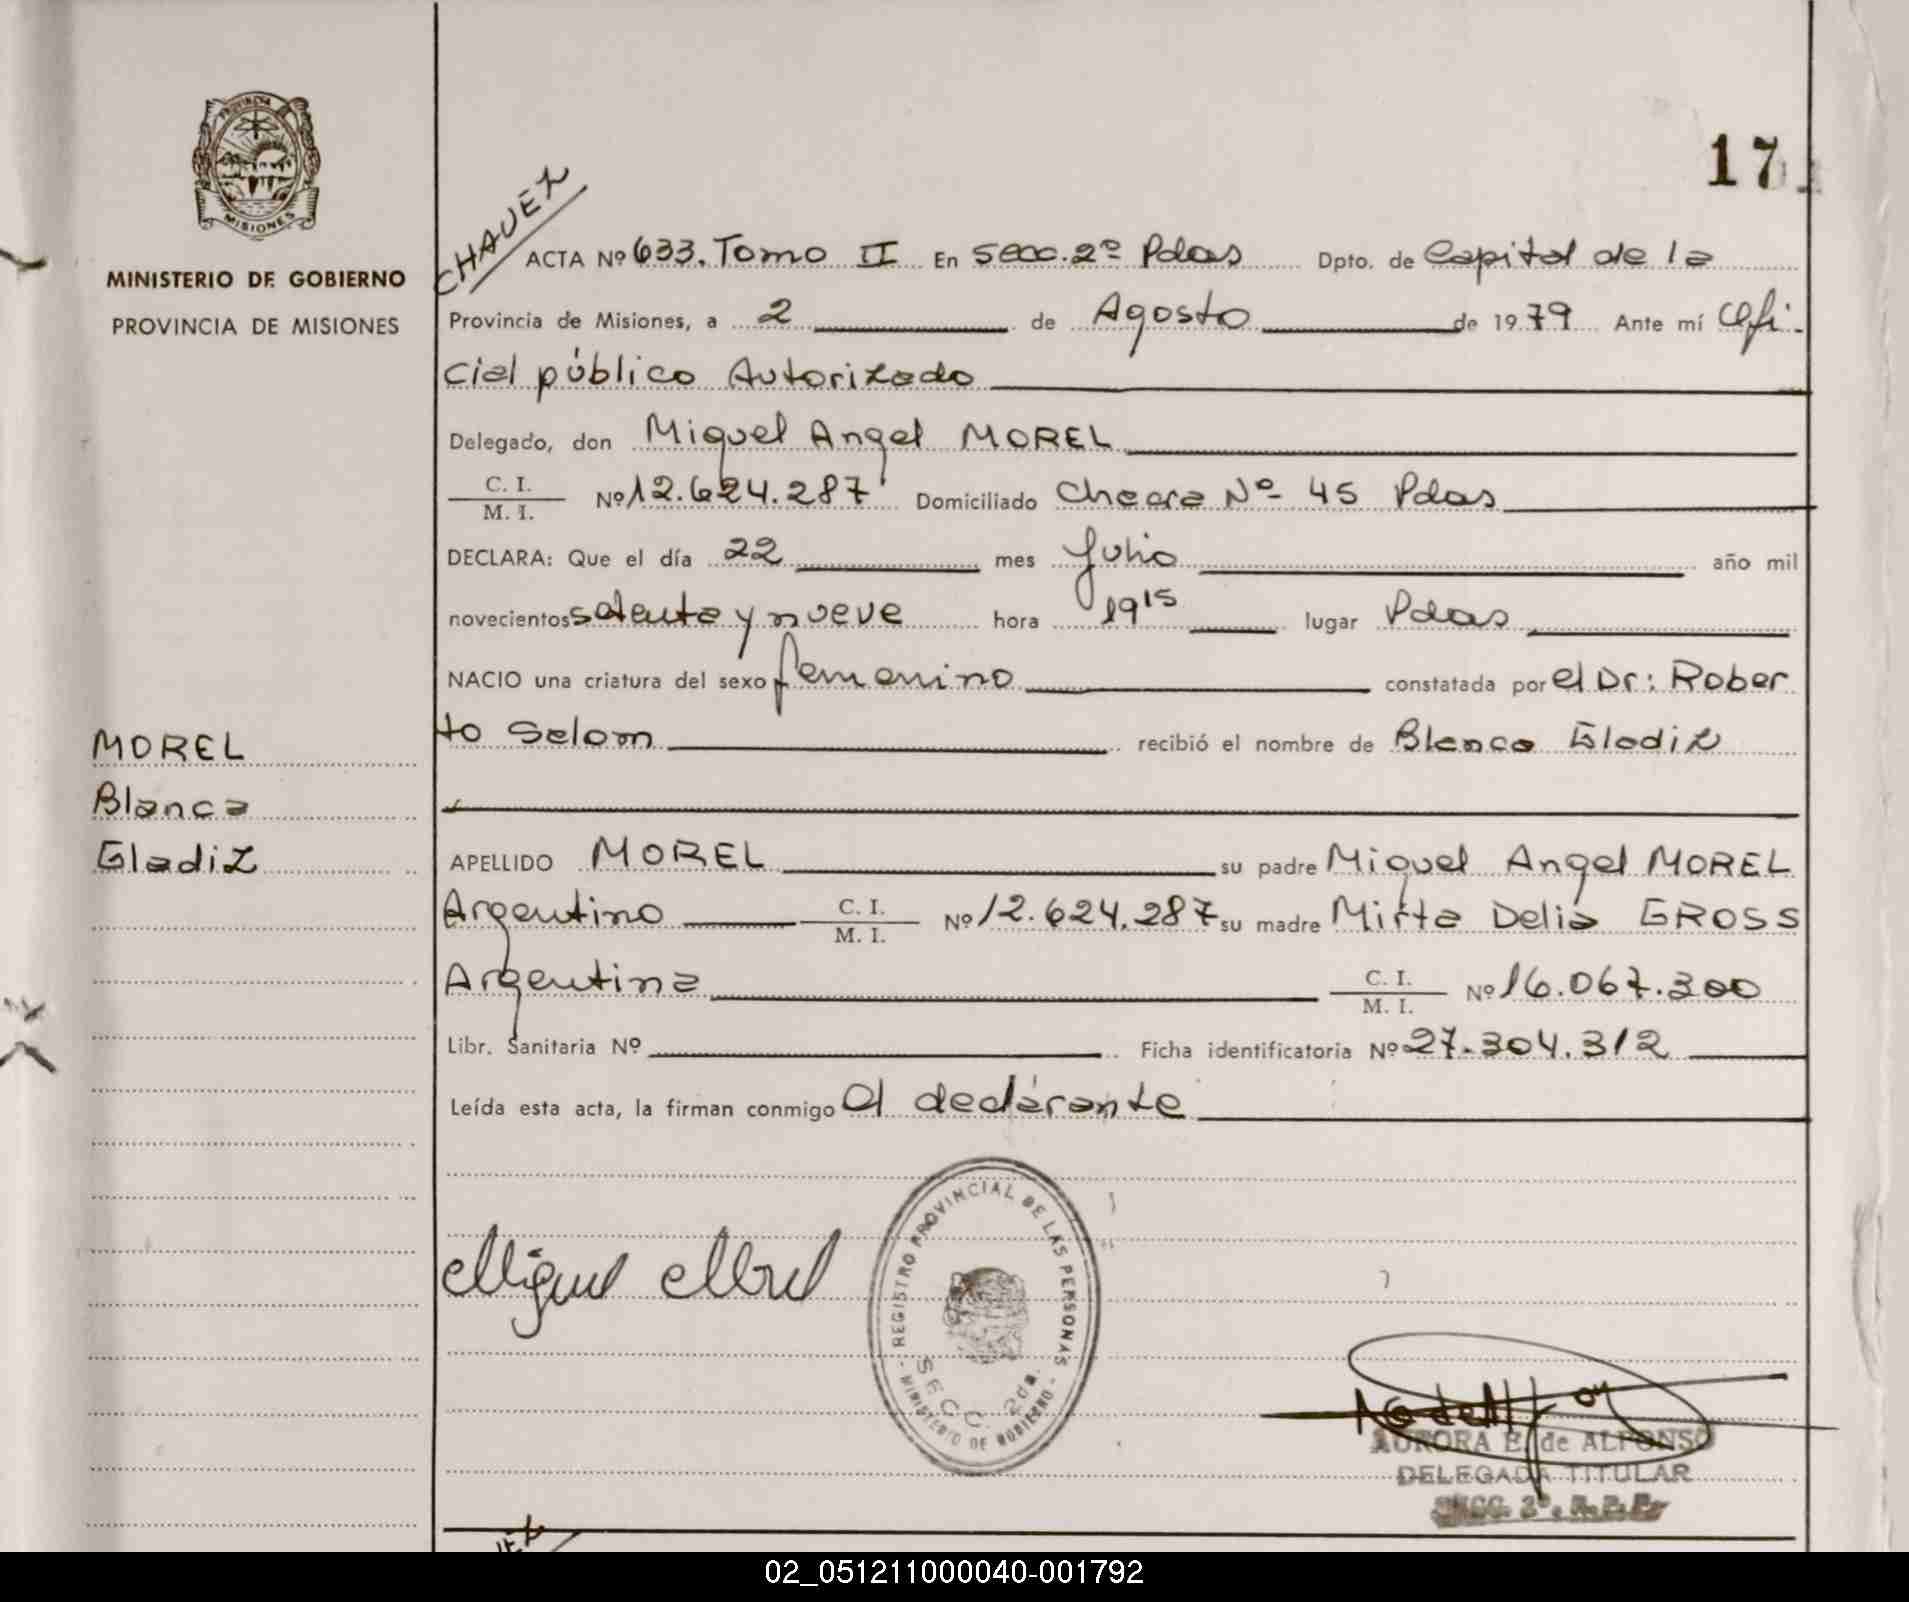 17
PROVINCIA
MISIONES
MINISTERIO DE GOBIERNO
PROVINCIA DE MISIONES
CHAVEZ
ACTA Nº 633. Tomo II En Secc. 2º Pdas Dpto. de Capital de la
Provincia de Misiones, a 2 de Agosto de 1979 Ante mí Ofi-
cial público Autorizado
Delegado, don Miguel Angel MOREL
C. I.
M. I. Nº 12.624.287 Domiciliado Chacra Nº 45 Pdas
DECLARA: Que el día 22 mes Julio año mil
novecientos setenta y nueve hora 19 15 lugar Pdas
NACIO una criatura del sexo femenino constatada por el Dr: Rober
to Selom recibió el nombre de Blanca Gladiz
MOREL
Blanca
Gladiz
APELLIDO MOREL su padre Miguel Angel MOREL
Argentino C. I.
M. I. Nº 12.624.287 su madre Mirta Delia GROSS
Argentina C. I.
M. I. Nº 16.067.300
Libr. Sanitaria Nº Ficha identificatoria Nº 27.304.312
Leída esta acta, la firman conmigo el declarante
Miguel Morel
REGISTRO PROVINCIAL DE LAS PERSONAS
SECC. 2da.
- MINISTERIO DE GOBIERNO -
AURORA E. de ALFONSO
DELEGADA TITULAR
SECC. 2ª. R. P. P.
02_051211000040-001792